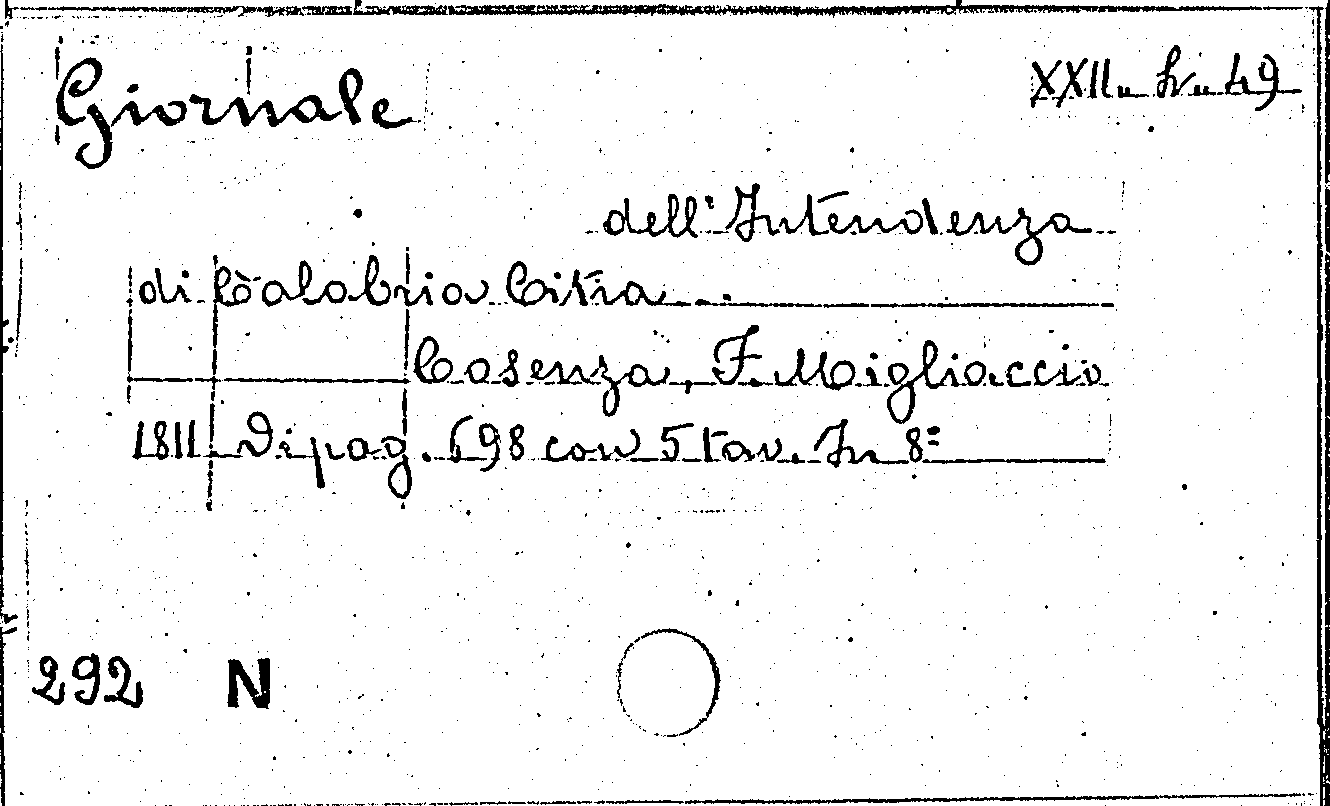 Giornale
XXII. 49
dell'Intendenza
di Calabria Citra ..
Cosenza, F. Migliaccio
1811 Di pag. 698 con 5 tav. In 8º
292 N